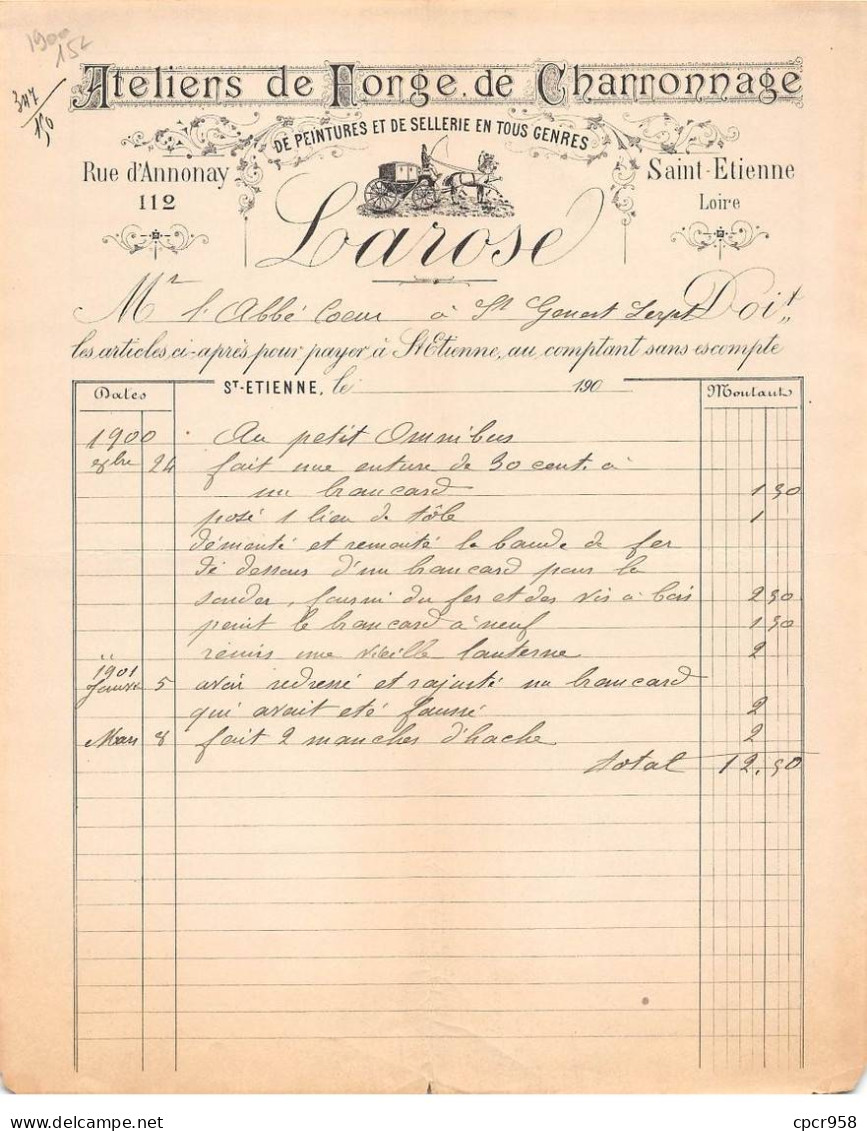 1900
152
347
150
Ateliers de Forge, de Charronnage
DE PEINTURES ET DE SELLERIE EN TOUS GENRES
Rue d'Annonay
112
Saint-Etienne
Loire
Larose
Mr l'Abbé Coeur à St Genest Lerpt Doit
les articles ci-après pour payer à St Etienne, au comptant sans escompte
Dates ST-ETIENNE, le 190 Montant
1900 Au petit Omnibus
8bre 24 fait une enture de 30 cent. à
un brancard 1 50
posé 1 lien de tôle 1
démonté et remonté la bande de fer
de dessous d'un brancard pour la
souder, fourni du fer et des vis à bois 2 50
peint le brancard à neuf 1 50
" remis une vieille lanterne 2
1901
Janvr 5 avoir redressé et rajusté un brancard
qui avait eté faussé 2
Mars 8 fait 2 manches d'hache 2
total 12,50
cpcr958